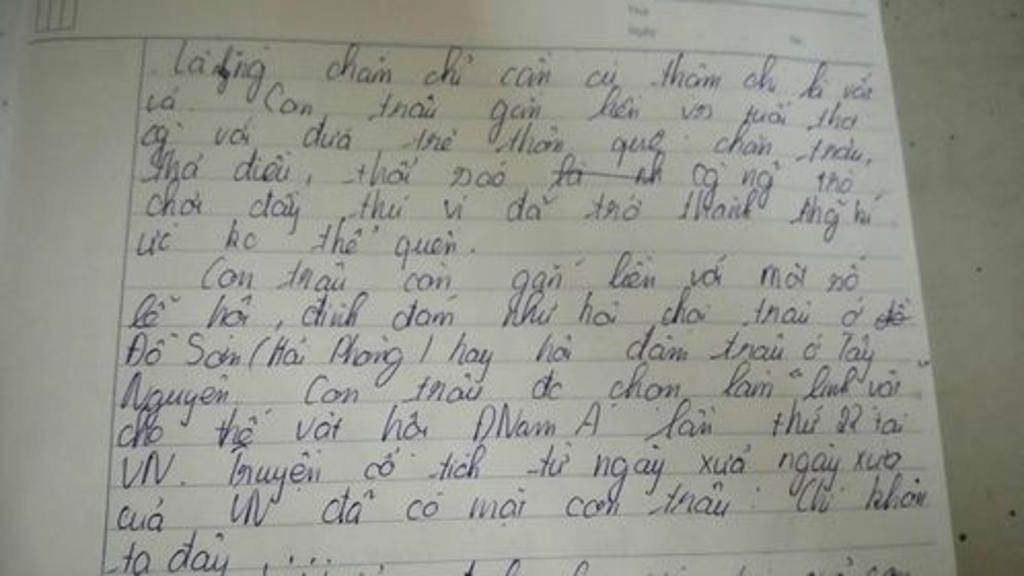 là tính chăm chỉ cần cù thậm chí là vất
vả. Con trâu gắn liền vs tuổi thơ
củ với đứa trẻ thôn quê: chăn trâu,
thả diều, thổi sáo là nh cq ng trò
chơi đầy thú vị đã trở thành những kí
ức ko thể quên.
Con trâu còn gắn liền với một số
lễ hội, đình đám như hội chọi trâu ở đồ
Đồ Sơn (Hải Phòng) hay hội đâm trâu ở Tây
Nguyên. Con trâu đc chọn làm "linh vật"
cho thế vật hội ĐNam Á lần thứ 22 tại
VN. Truyện cổ tích từ ngày xửa ngày xưa
của VN đã có mặt con trâu: Chí khôn
ta đây